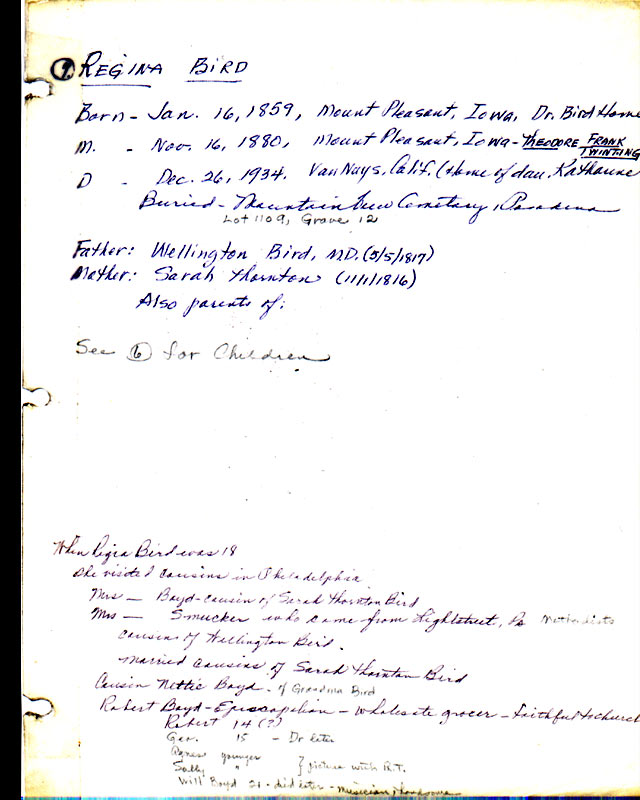 9. REGINA BIRD
Born - Jan. 16, 1859, Mount Pleasant, Iowa, Dr. Bird Home
M. - Nov. 16, 1880, Mount Pleasant, Iowa - THEODORE FRANK
TWINTING
D - Dec. 26, 1934. Van Nuys, Calif. (Home of dau. Katharine
Buried - Mountain View Cemetary, Pasadena
Lot 1109, Grave 12
Father: Wellington Bird, M.D. (3/5/1817)
Mother: Sarah Thornton (11/1/1816)
Also parents of:
See 6 for Children
When Regina Bird was 18
she visited cousins in Philadelphia
Mrs — Boyd - cousin of Sarah Thornton Bird
Mrs — Smucker who came from Lightstreet, Pa Methodists
cousins of Wellington Bird.
married cousins of Sarah Thornton Bird
Cousin Nettie Boyd - of Grandma Bird
Robert Boyd - Episcopalian - wholesale grocer - faithful to church
Robert 14 (?)
Geo. 15 - Dr later
Agnes younger
Sally " } picture with R.T.
Will Boyd 21 - died later - musician, handsome